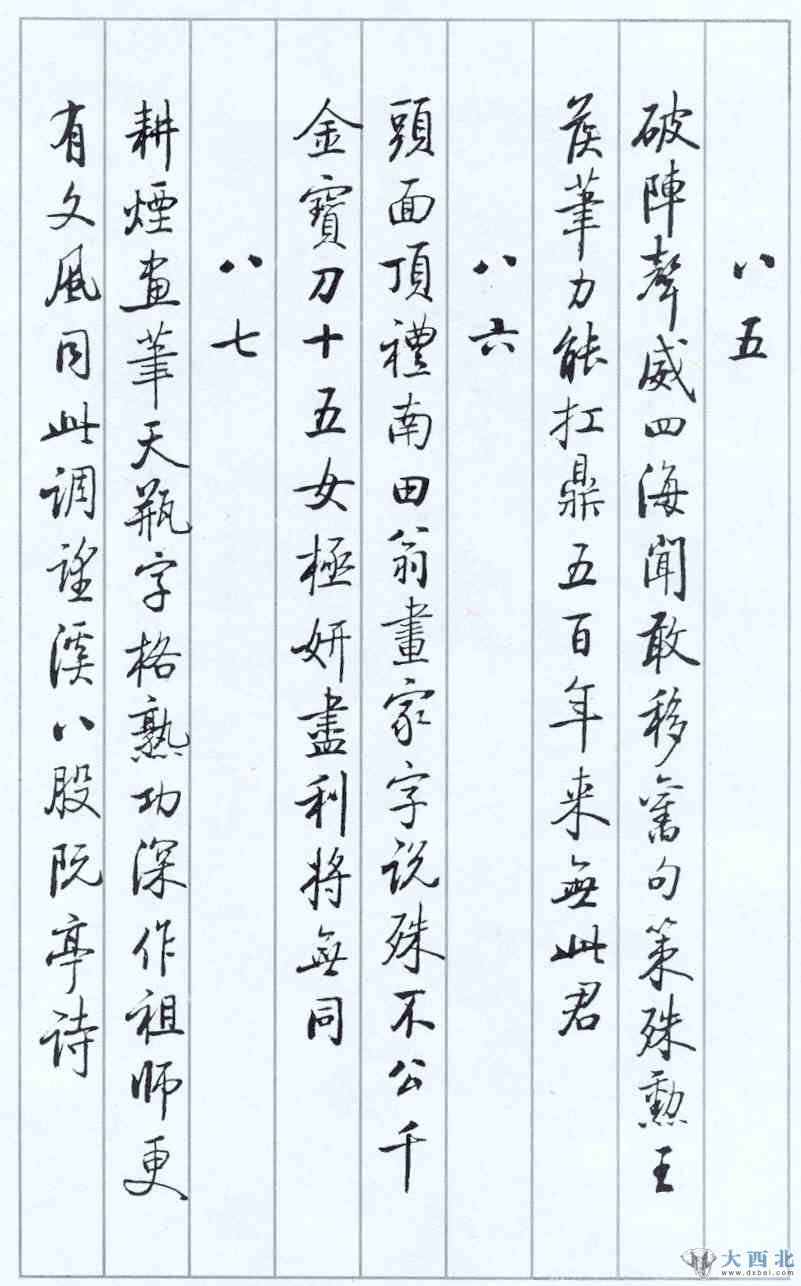 八五
破陣聲威四海聞敢移舊句策殊勲王
侯筆力能扛鼎五百年来無此君
八六
頭面頂禮南田翁畫家字説殊不公千
金寶刀十五女極妍盡利將無同
八七
耕煙畫筆天瓶字格熟功深作祖師更
有文風同此調望溪八股阮亭诗
大西北
www.dxbei.com